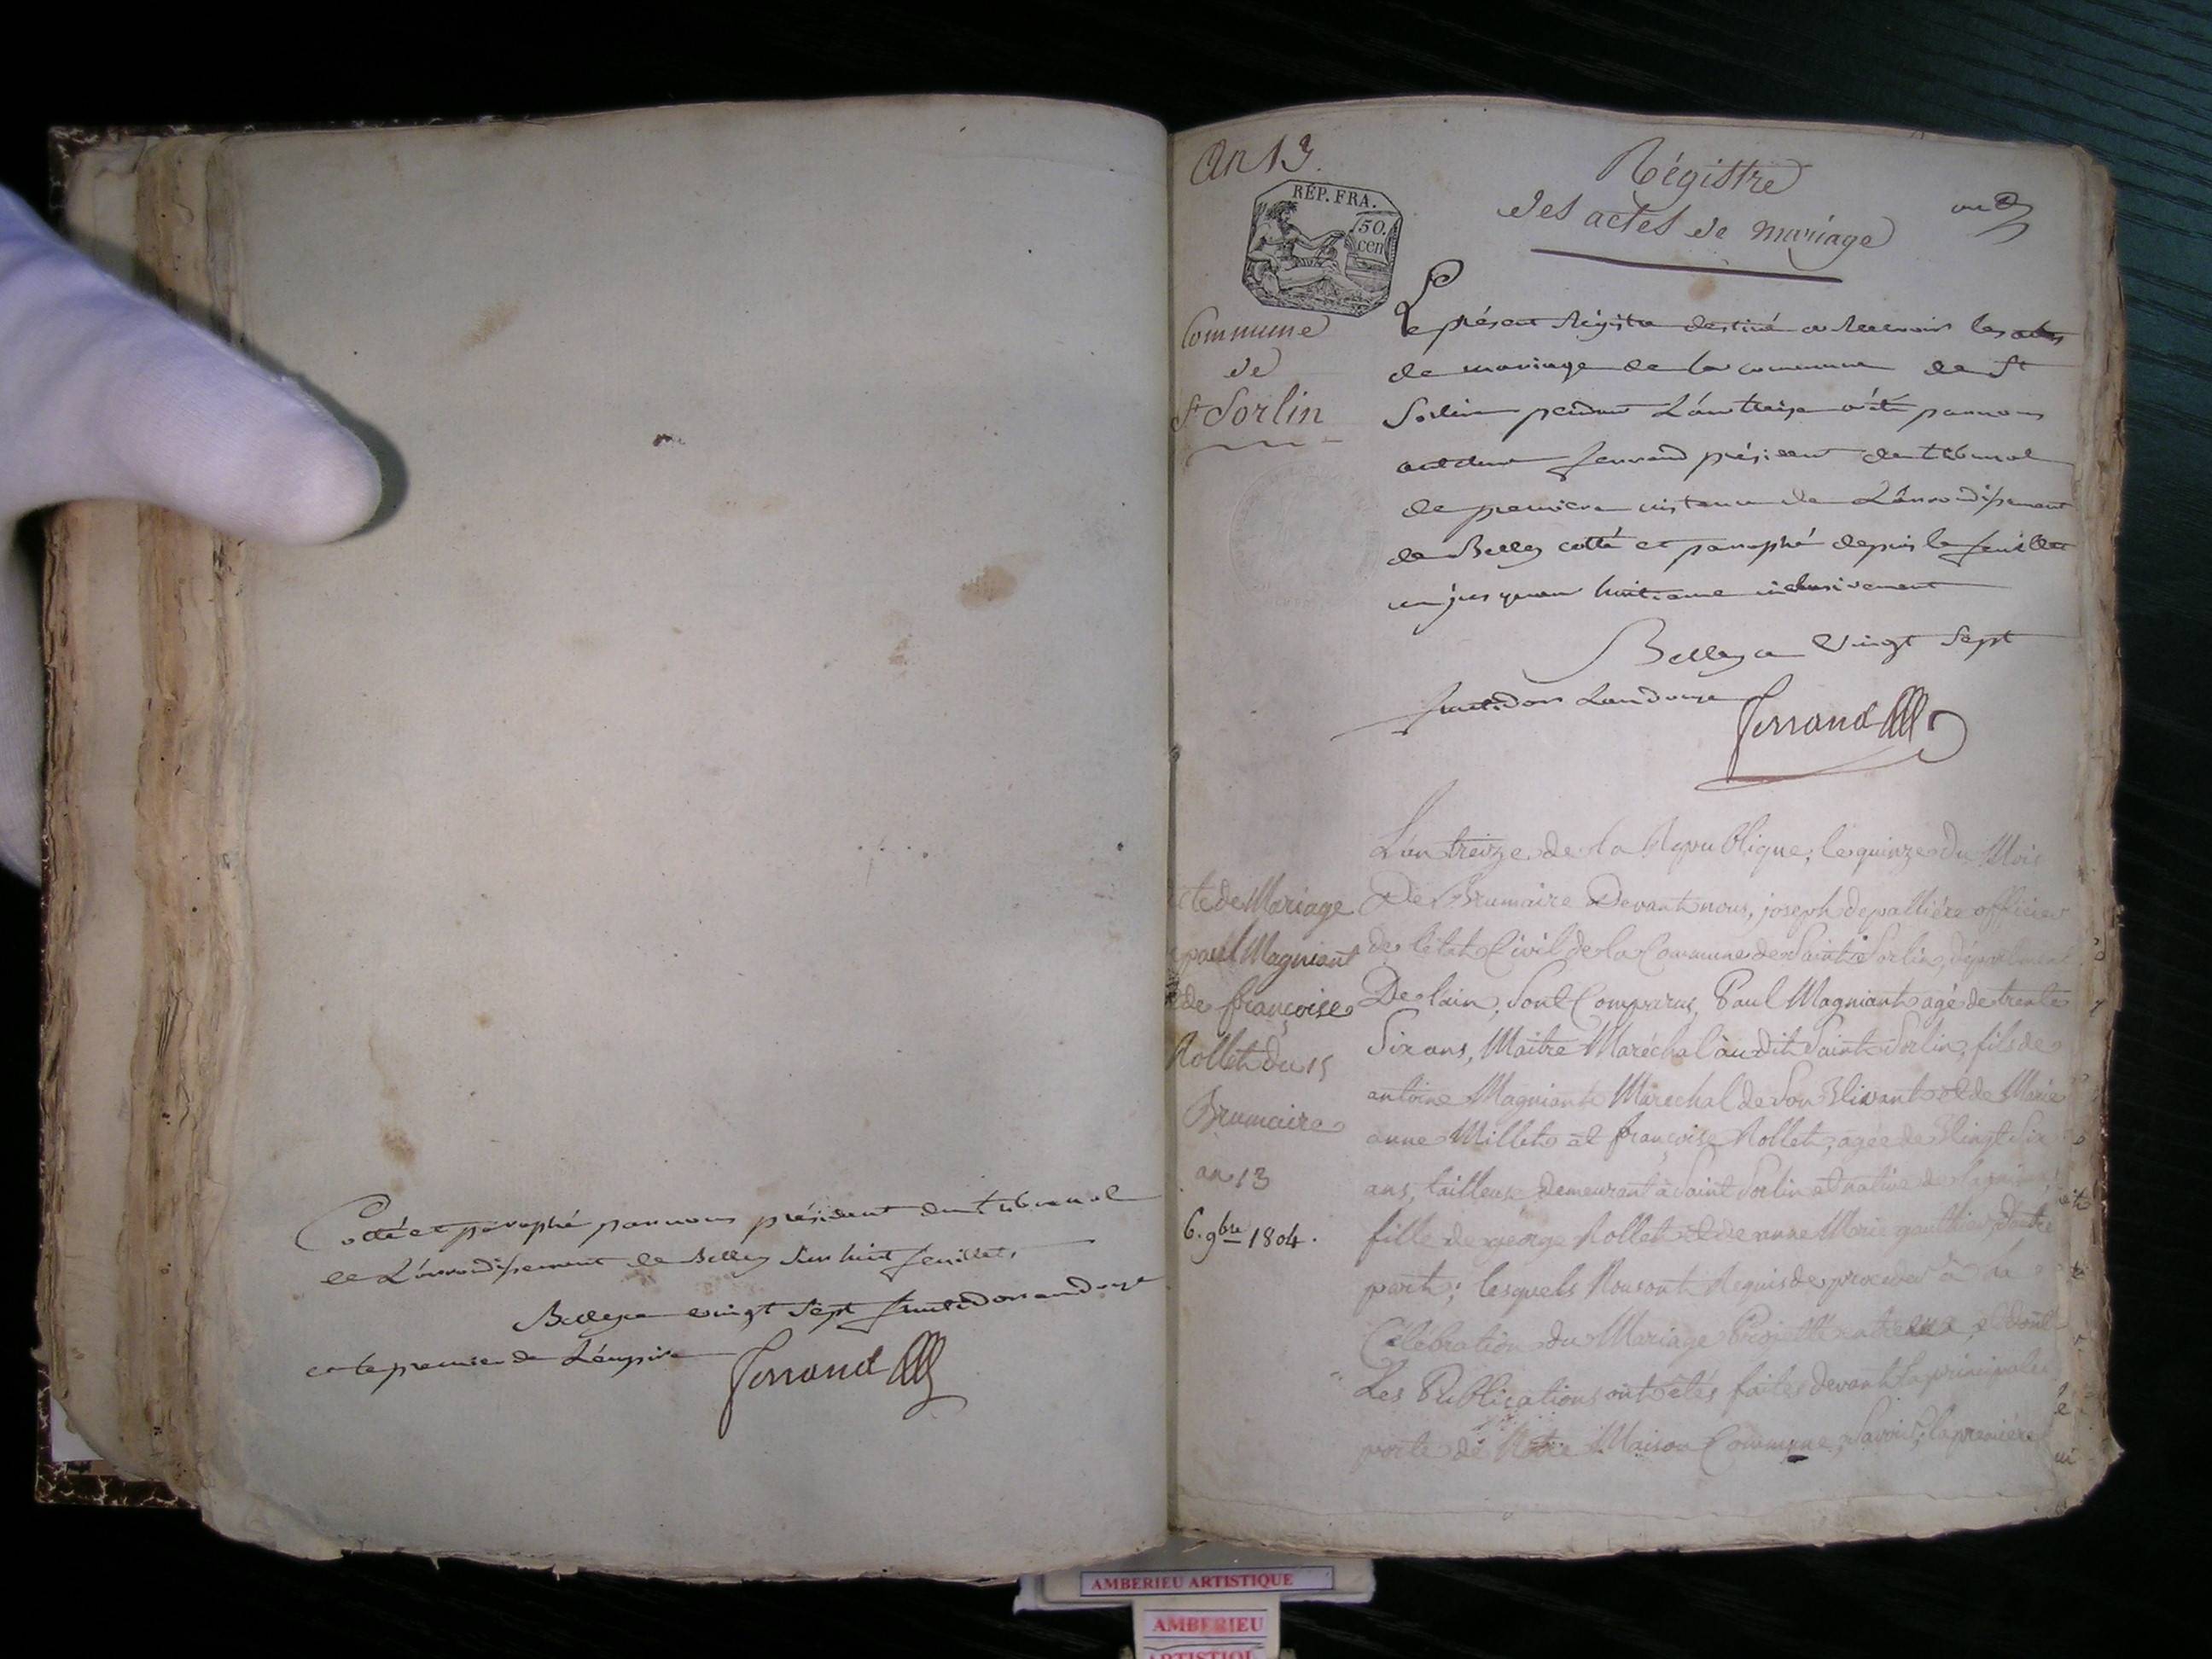 Cotté et paraphé par nous président du tribunal
de L'arrondissement de Belley sur huit feuillets
Belley ce vingt sept fructidor an douze
et le premier de L'empire
Ferrand
An 13.
RÉP. FRA.
50.
cen
Régistre
des actes de mariage
Commune
de
St Sorlin
Le présent Régistre destiné a Recevoir les actes
de mariage de la commune de St
Sorlin pendant L'an treize a été par nous
ferrand président du tribunal
de premiere instance de L'arrondissement
de Belley cotté et paraphé depuis le feuillet
un jusqu'au huitieme inclusivement
Belley ce vingt sept
fructidor L'an douze
Ferrand
L'an treize de la République, le quinze du Mois
De Brumaire Devant nous, joseph depalliére officier
de l'état Civil de la Commune de Saint Sorlin, département
De lain, sont Comparus, Paul Magniant agé de trente
Six ans, Maitre Maréchal audit Saint Sorlin, fils de
antoine Magniant Maréchal de Son Vivant et de Marie
anne Millet et françoise Rollet, agée de Vingt Six
ans, tailleuse demeurant à Saint Sorlin et native de
fille de george Rollet et de anne Marie gauthier, d'autre
part; lesquels Nous ont Requis de proceder à la
Célébration du Mariage Projetté entre eux, et dont
Les Publications ont étés faites devant la principale
porte de Notre Maison Commune, Savoir; la premiére
cte de Mariage
paul Magniant
de françoise
Rollet du 15
Brumaire
an 13
6. 9bre 1804.
AMBERIEU ARTISTIQUE
AMBERIEU
ARTISTIQU